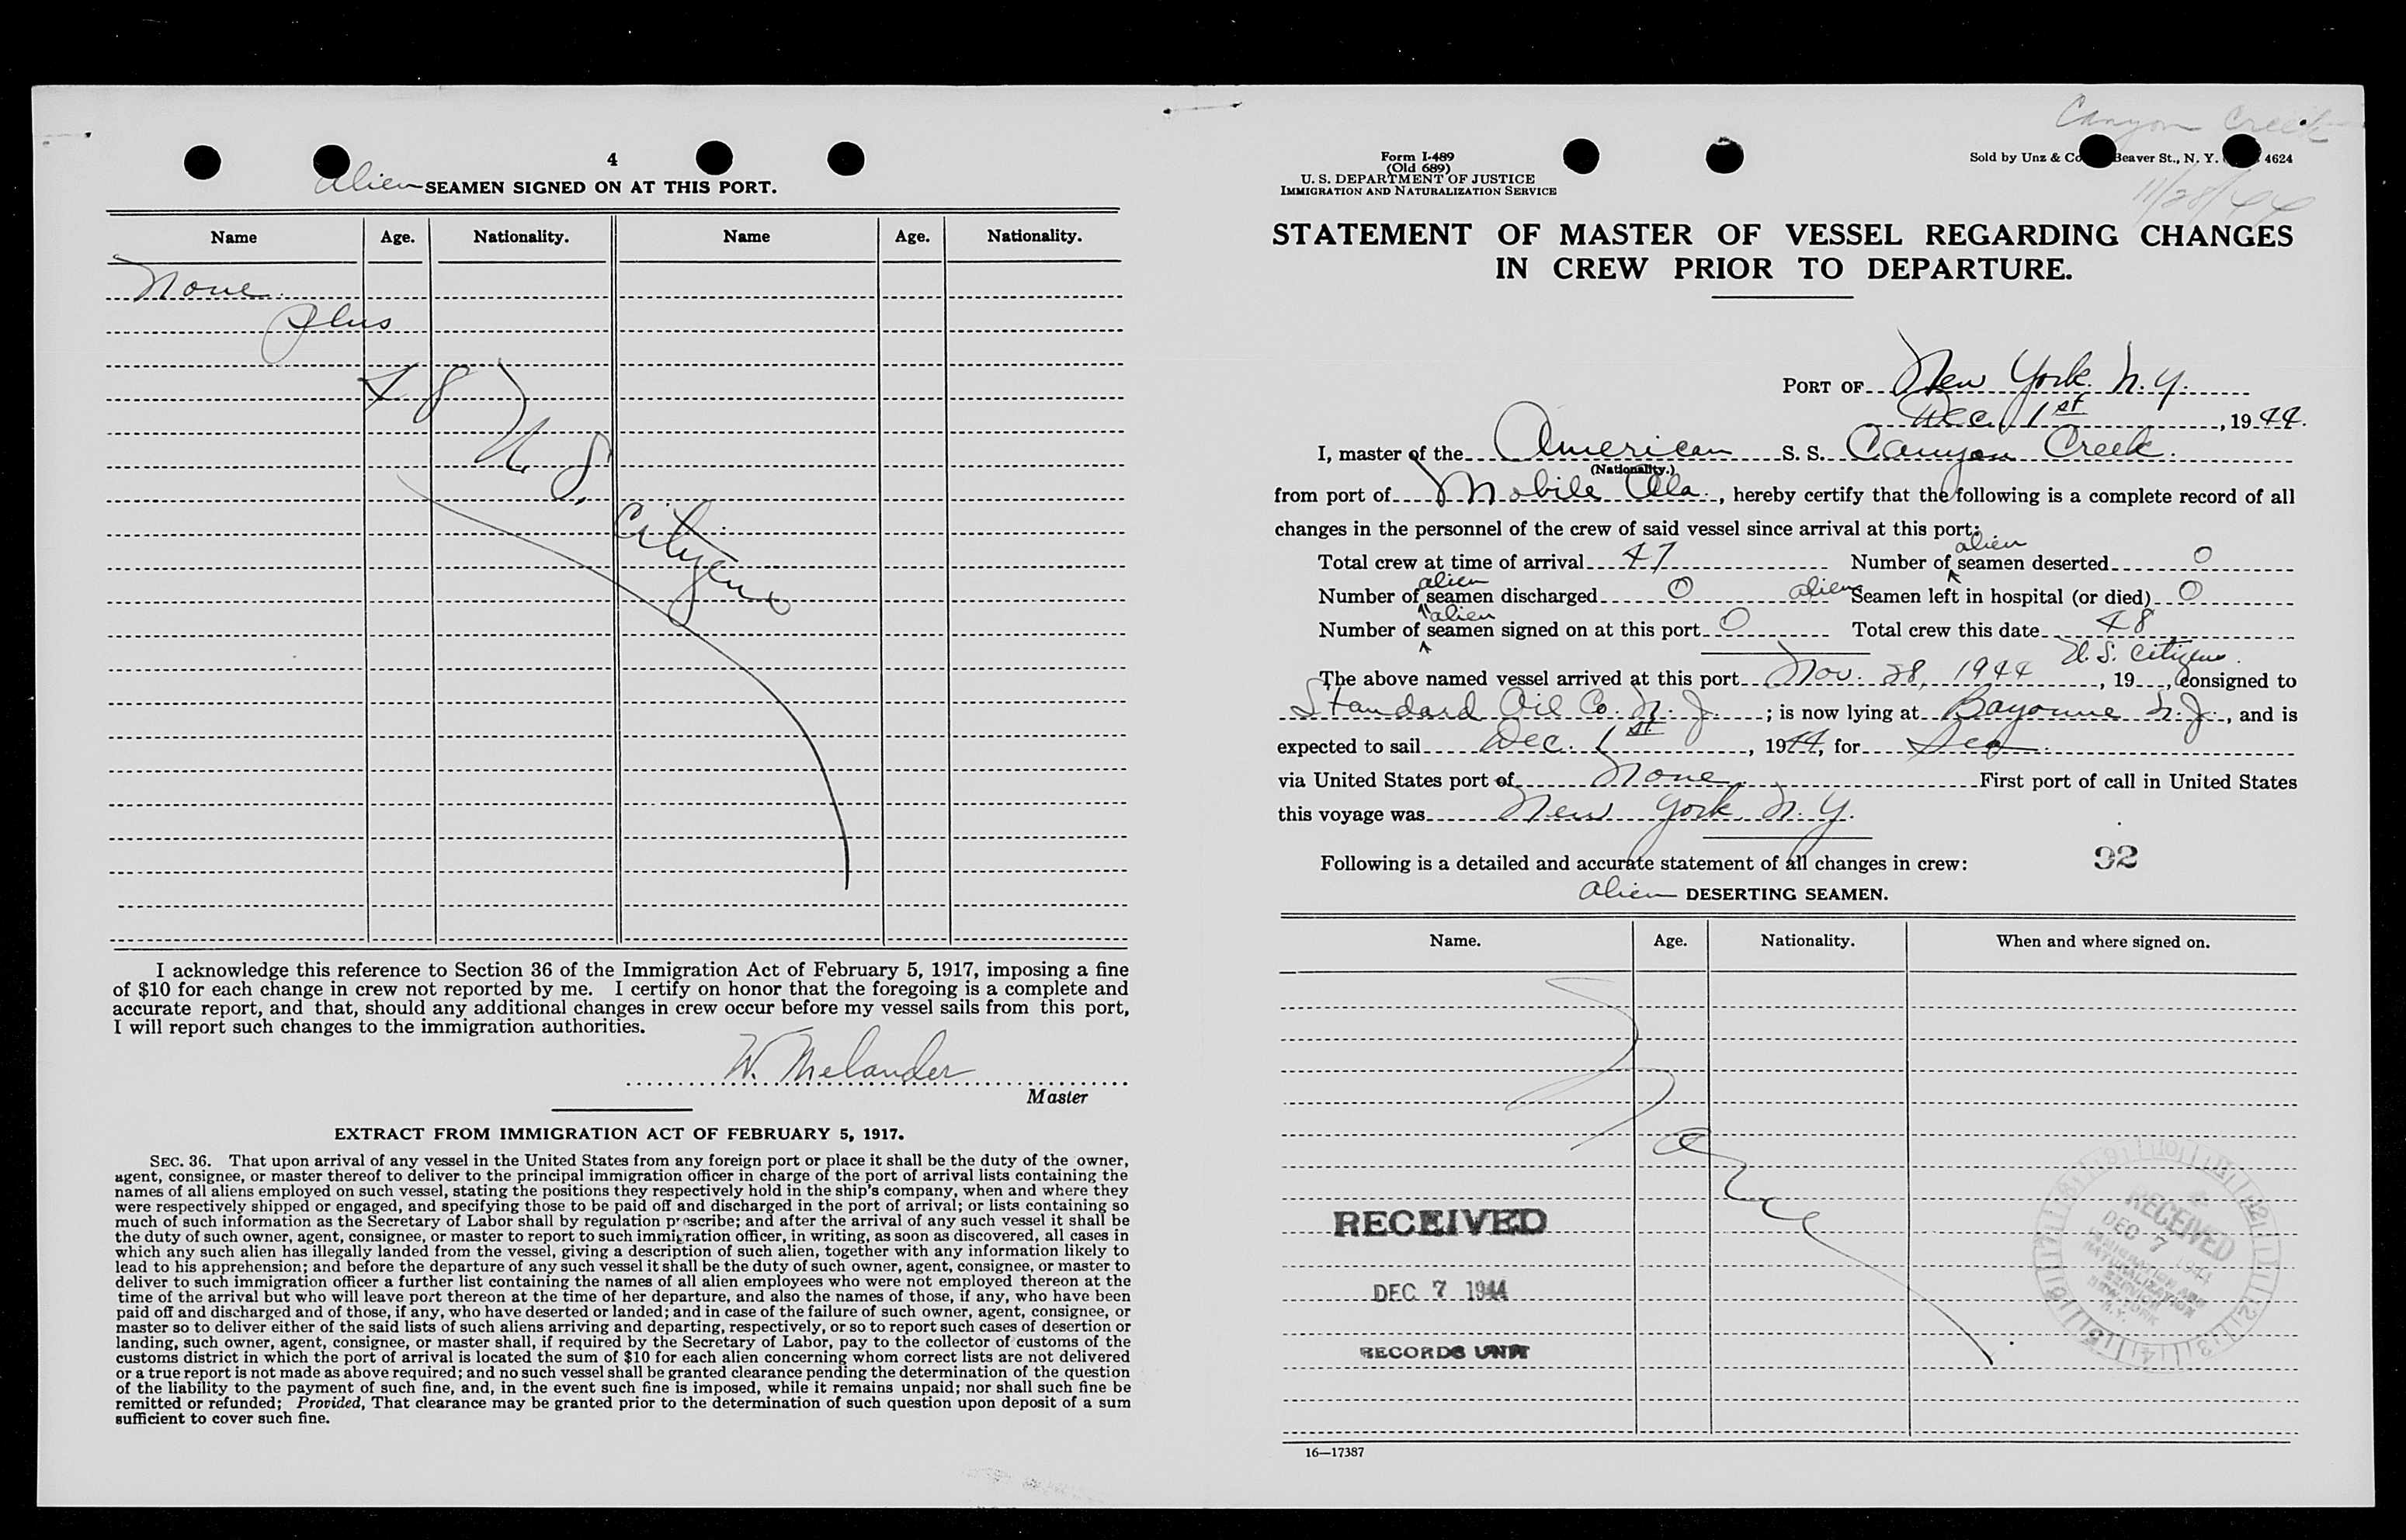 4
Alien SEAMEN SIGNED ON AT THIS PORT.
Name Age. Nationality. Name Age. Nationality.
None
plus
48 U.S. Citizens
I acknowledge this reference to Section 36 of the Immigration Act of February 5, 1917, imposing a fine
of $10 for each change in crew not reported by me. I certify on honor that the foregoing is a complete and
accurate report, and that, should any additional changes in crew occur before my vessel sails from this port,
I will report such changes to the immigration authorities.
W. Melander
Master
EXTRACT FROM IMMIGRATION ACT OF FEBRUARY 5, 1917.
SEC. 36. That upon arrival of any vessel in the United States from any foreign port or place it shall be the duty of the owner,
agent, consignee, or master thereof to deliver to the principal immigration officer in charge of the port of arrival lists containing the
names of all aliens employed on such vessel, stating the positions they respectively hold in the ship's company, when and where they
were respectively shipped or engaged, and specifying those to be paid off and discharged in the port of arrival; or lists containing so
much of such information as the Secretary of Labor shall by regulation prescribe; and after the arrival of any such vessel it shall be
the duty of such owner, agent, consignee, or master to report to such immigration officer, in writing, as soon as discovered, all cases in
which any such alien has illegally landed from the vessel, giving a description of such alien, together with any information likely to
lead to his apprehension; and before the departure of any such vessel it shall be the duty of such owner, agent, consignee, or master to
deliver to such immigration officer a further list containing the names of all alien employees who were not employed thereon at the
time of the arrival but who will leave port thereon at the time of her departure, and also the names of those, if any, who have been
paid off and discharged and of those, if any, who have deserted or landed; and in case of the failure of such owner, agent, consignee, or
master so to deliver either of the said lists of such aliens arriving and departing, respectively, or so to report such cases of desertion or
landing, such owner, agent, consignee, or master shall, if required by the Secretary of Labor, pay to the collector of customs of the
customs district in which the port of arrival is located the sum of $10 for each alien concerning whom correct lists are not delivered
or a true report is not made as above required; and no such vessel shall be granted clearance pending the determination of the question
of the liability to the payment of such fine, and, in the event such fine is imposed, while it remains unpaid; nor shall such fine be
remitted or refunded; Provided, That clearance may be granted prior to the determination of such question upon deposit of a sum
sufficient to cover such fine.
Canyon Creek
Form I-489
(Old 689)
U. S. DEPARTMENT OF JUSTICE
IMMIGRATION AND NATURALIZATION SERVICE
Sold by Unz & Co Beaver St., N. Y. 4624
11/28/44
STATEMENT OF MASTER OF VESSEL REGARDING CHANGES
IN CREW PRIOR TO DEPARTURE.
PORT OF New York. N.Y.
Dec. 1st, 1944.
I, master of the American S. S. Canyon Creek.
(Nationality.)
from port of Mobile Ala., hereby certify that the following is a complete record of all
changes in the personnel of the crew of said vessel since arrival at this port:
Total crew at time of arrival 47 Number of alien seamen deserted 0
Number of alien seamen discharged 0 alien Seamen left in hospital (or died) 0
Number of alien seamen signed on at this port 0 Total crew this date 48
U. S. Citizens.
The above named vessel arrived at this port Nov. 28, 1944, 19, consigned to
Standard Oil Co. N. J.; is now lying at Bayonne N.J., and is
expected to sail Dec. 1st, 1944, for Sea.
via United States port of None. First port of call in United States
this voyage was New York. N.Y.
Following is a detailed and accurate statement of all changes in crew: 92
Alien DESERTING SEAMEN.
Name. Age. Nationality. When and where signed on.
None
RECEIVED
DEC 7 1944
RECORDS UNIT
RECEIVED
DEC 7 1944
IMMIGRATION AND
NATURALIZATION
SERVICE
NEW YORK
N.Y.
16—17387